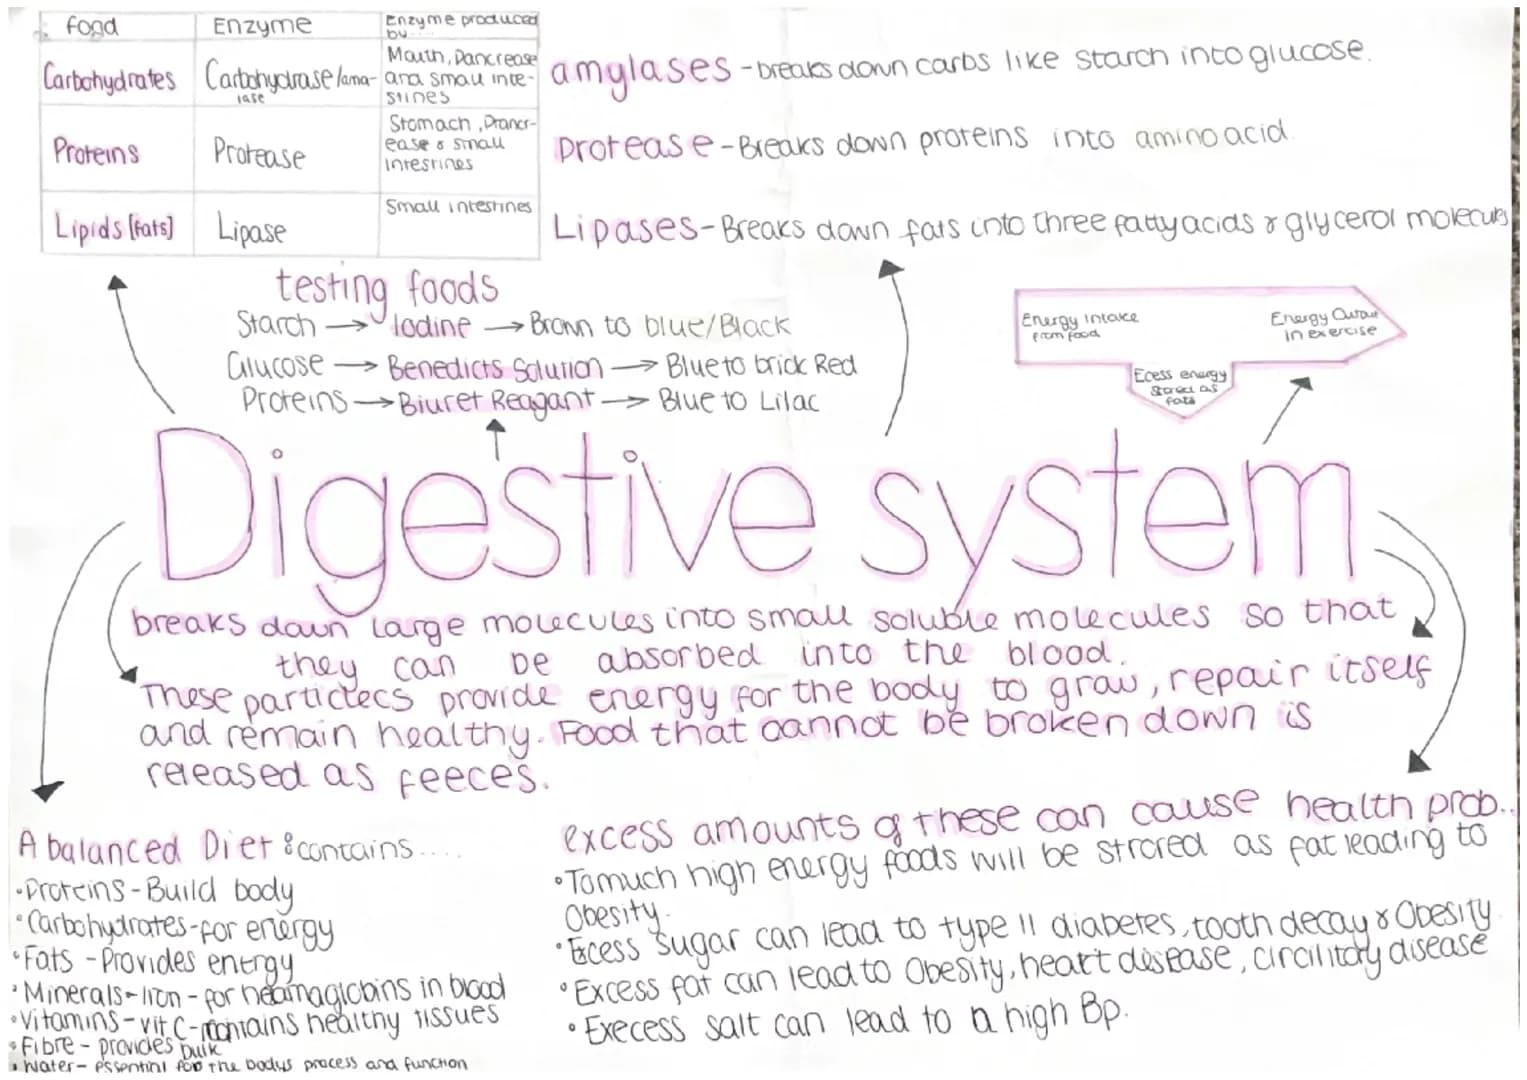 Food Enzyme Enzyme produced by....
Carbohydrates Carbohydrase/ama-
lase
Mouth, Pancrease
and small inte-
stines
Proteins Protease
Stomach, Prancr-
ease & small
intestines
Lipids [fats] Lipase Small intestines
amylases - breaks down carbs like starch into glucose.
Protease - Breaks down proteins into amino acid.
Lipases - Breaks down fats into three fatty acids & glycerol molecules
testing foods
Starch → Iodine → Brown to blue/Black
Glucose → Benedicts Solution → Blue to brick Red
Proteins → Biuret Reagant → Blue to Lilac
Energy Intake
from food
Energy Output
in exercise
Ecess energy
stored as
fats
Digestive system
breaks down large molecules into small soluble molecules so that
they can be absorbed into the blood.
These particlecs provide energy for the body to grow, repair itself
and remain healthy. Food that cannot be broken down is
released as feeces.
A balanced Diet : contains....
•Proteins - Build body
•Carbohydrates - for energy
•Fats - Provides energy
•Minerals - Iron - for heamaglobins in blood
•Vitamins - vit C - maintains healthy tissues
•Fibre - provides bulk
•Water - essential for the bodys process and function
excess amounts of these can cause health prob..
•Tomuch high energy foods will be strored as fat leading to
Obesity.
•Ecess sugar can lead to type 11 diabetes, tooth decay & Obesity.
•Excess fat can lead to Obesity, heart disease, circilitory disease
•Execess salt can lead to a high Bp.